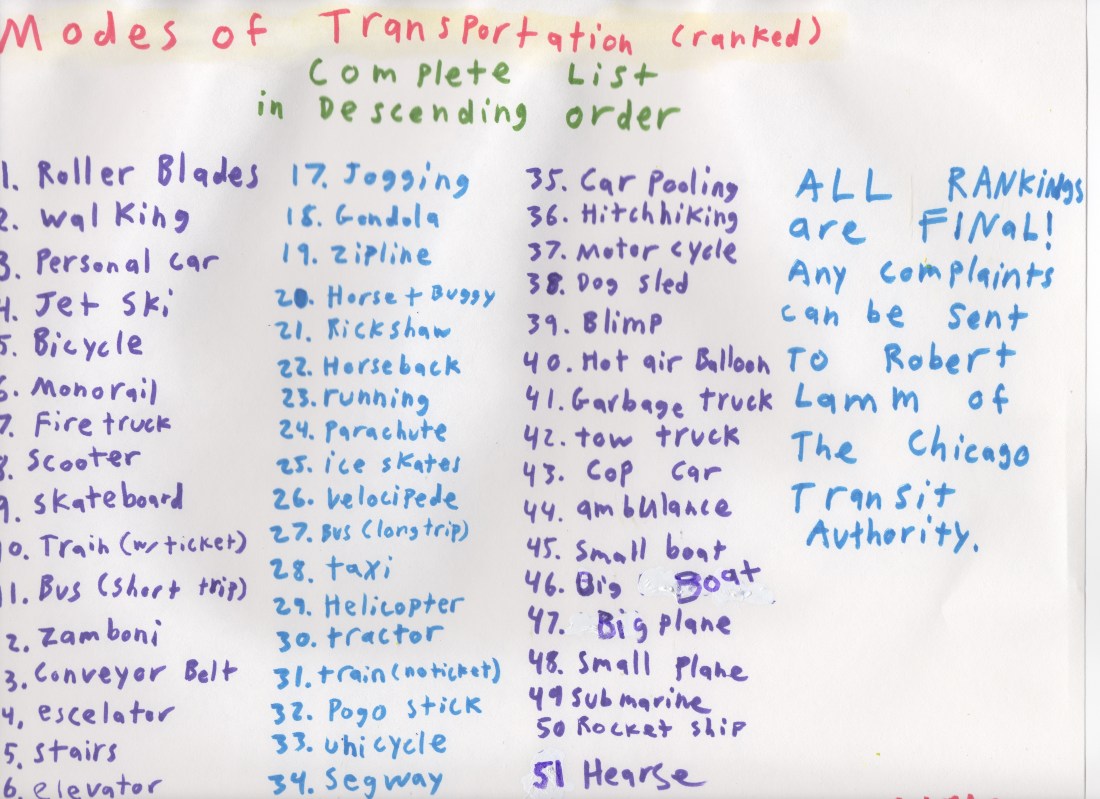 Modes of Transportation (ranked)
Complete List
in Descending order
1. Roller Blades
2. Walking
3. Personal car
4. Jet Ski
5. Bicycle
6. Monorail
7. Fire truck
8. Scooter
9. Skateboard
10. Train (w/ ticket)
11. Bus (short trip)
2. Zamboni
3. Conveyor Belt
4. escelator
5. Stairs
6. elevator
17. Jogging
18. Gondola
19. Zipline
20. Horse + Buggy
21. Rickshaw
22. Horseback
23. running
24. Parachute
25. ice skates
26. Velocipede
27. Bus (long trip)
28. taxi
29. Helicopter
30. tractor
31. train (no ticket)
32. Pogo stick
33. unicycle
34. Segway
35. Car Pooling
36. Hitchhiking
37. Motor cycle
38. Dog sled
39. Blimp
40. Hot air Balloon
41. Garbage truck
42. tow truck
43. Cop Car
44. ambulance
45. Small boat
46. Big Boat
47. Big plane
48. Small Plane
49 Submarine
50 Rocket ship
51 Hearse
ALL RANKINGS
are FINAL!
Any complaints
can be sent
To Robert
Lamm of
The Chicago
Transit
Authority.